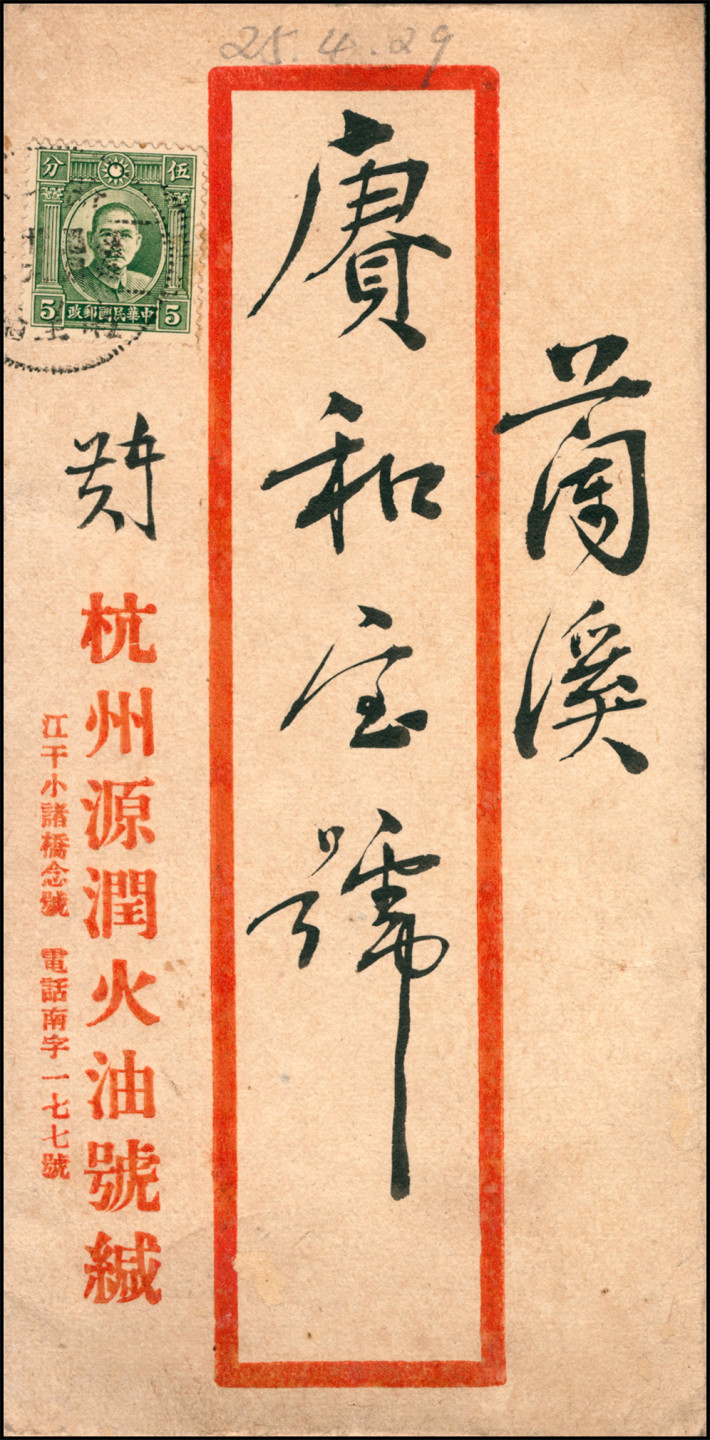 25.4.29
蘭溪
賡和宝號
伍分
5 中華民國郵政 5
杭州源潤火油號緘
江干小諸橋念號 電話南字一七七號